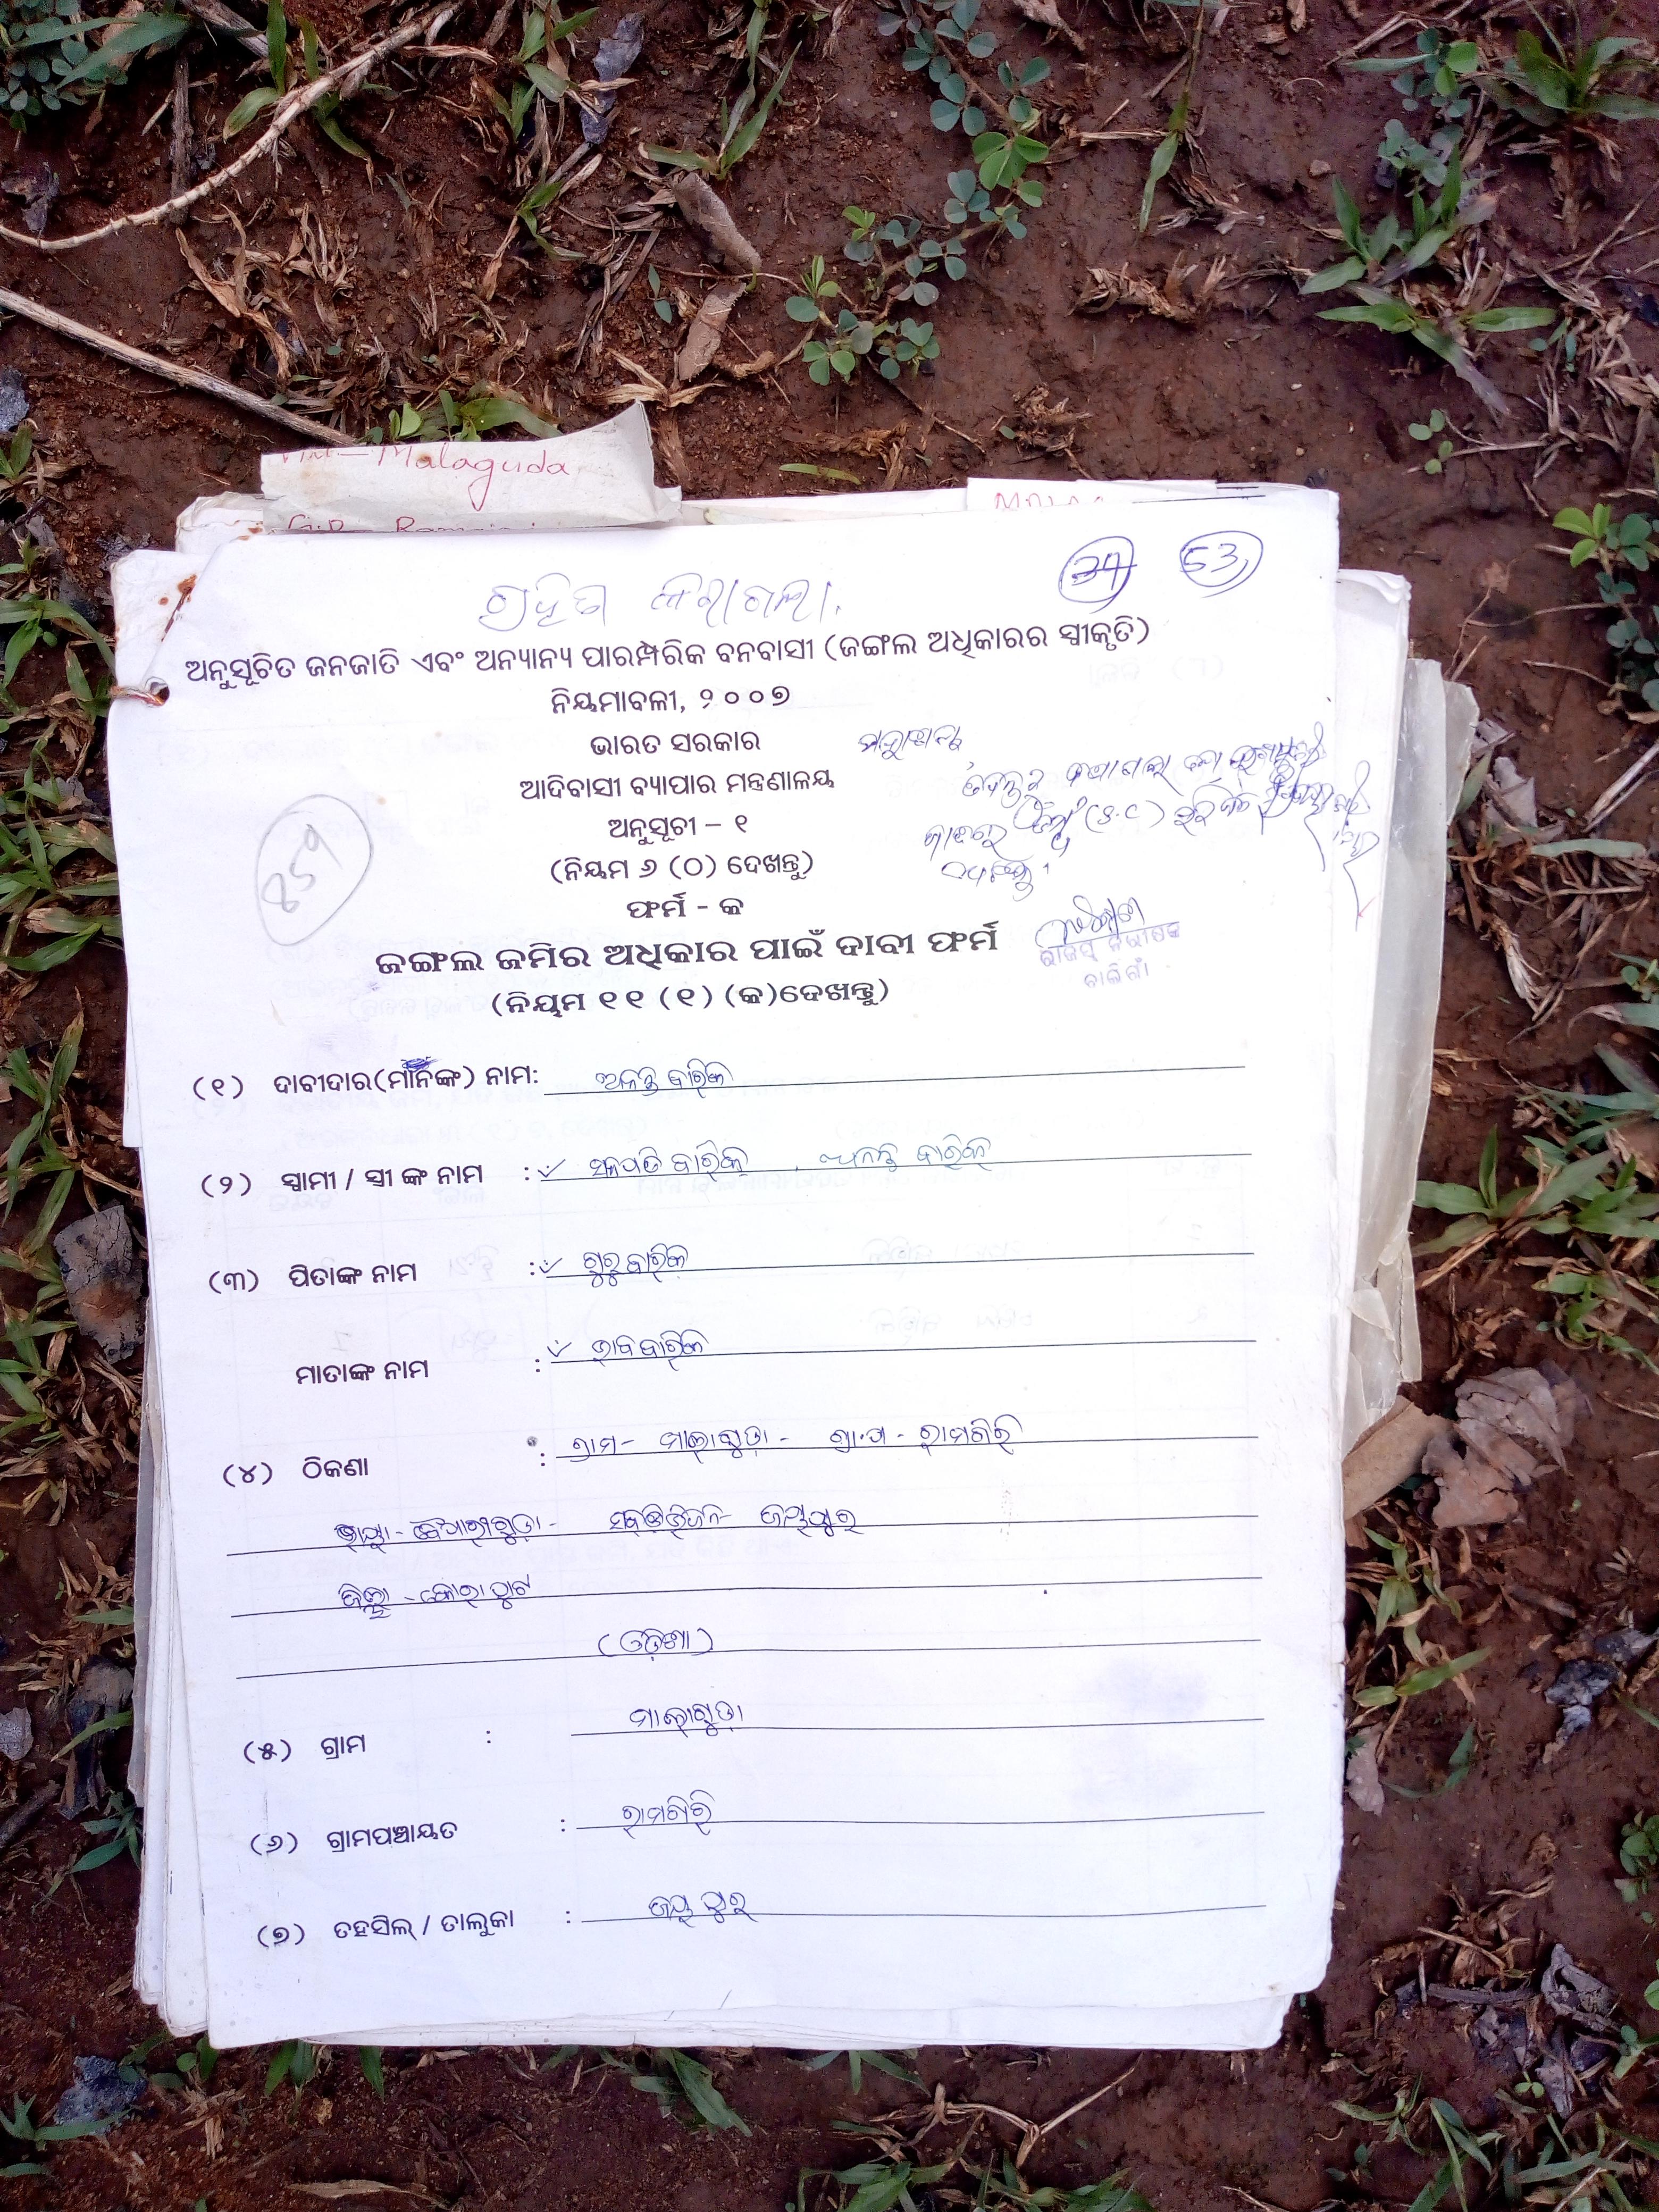 Malaguda
G.P.
34 53
ଅନୁସୂଚିତ ଜନଜାତି ଏବଂ ଅନ୍ୟାନ୍ୟ ପାରମ୍ପରିକ ବନବାସୀ (ଜଙ୍ଗଲ ଅଧିକାରର ସ୍ୱୀକୃତି)
ନିୟମାବଳୀ, ୨୦୦୭
ଭାରତ ସରକାର
ଆଦିବାସୀ ବ୍ୟାପାର ମନ୍ତ୍ରଣାଳୟ
ଅନୁସୂଚୀ – ୧
(ନିୟମ ୬ (୦) ଦେଖନ୍ତୁ)
ଫର୍ମ - କ
ଜଙ୍ଗଲ ଜମିର ଅଧିକାର ପାଇଁ ଦାବୀ ଫର୍ମ
(ନିୟମ ୧୧ (୧) (କ)ଦେଖନ୍ତୁ)
ରାଜସ୍ୱ ନିରୀକ୍ଷକ
(୧) ଦାବୀଦାର(ମାନଙ୍କ) ନାମ: ଅନନ୍ତ ବାରିକ
(୨) ସ୍ୱାମୀ / ସ୍ତ୍ରୀ ଙ୍କ ନାମ : ବାରିକ ଅନନ୍ତ ବାରିକ
(୩) ପିତାଙ୍କ ନାମ : ଗୁରୁ ବାରିକ
ମାତାଙ୍କ ନାମ : ବାରିକ
(୪) ଠିକଣା : ଗ୍ରାମ- ମାଲାଗୁଡ଼ା - ଗ୍ରା.ପ - ରାମଗିରି
ଭାୟା - ବୈପାରୀଗୁଡ଼ା - ସବଡିଭିଜନ- ଜୟପୁର
ଜିଲ୍ଲା - କୋରାପୁଟ
(ଓଡ଼ିଶା)
(୫) ଗ୍ରାମ : ମାଲାଗୁଡ଼ା
(୬) ଗ୍ରାମପଞ୍ଚାୟତ : ରାମଗିରି
(୭) ତହସିଲ୍ / ତାଲୁକା : ଜୟପୁର